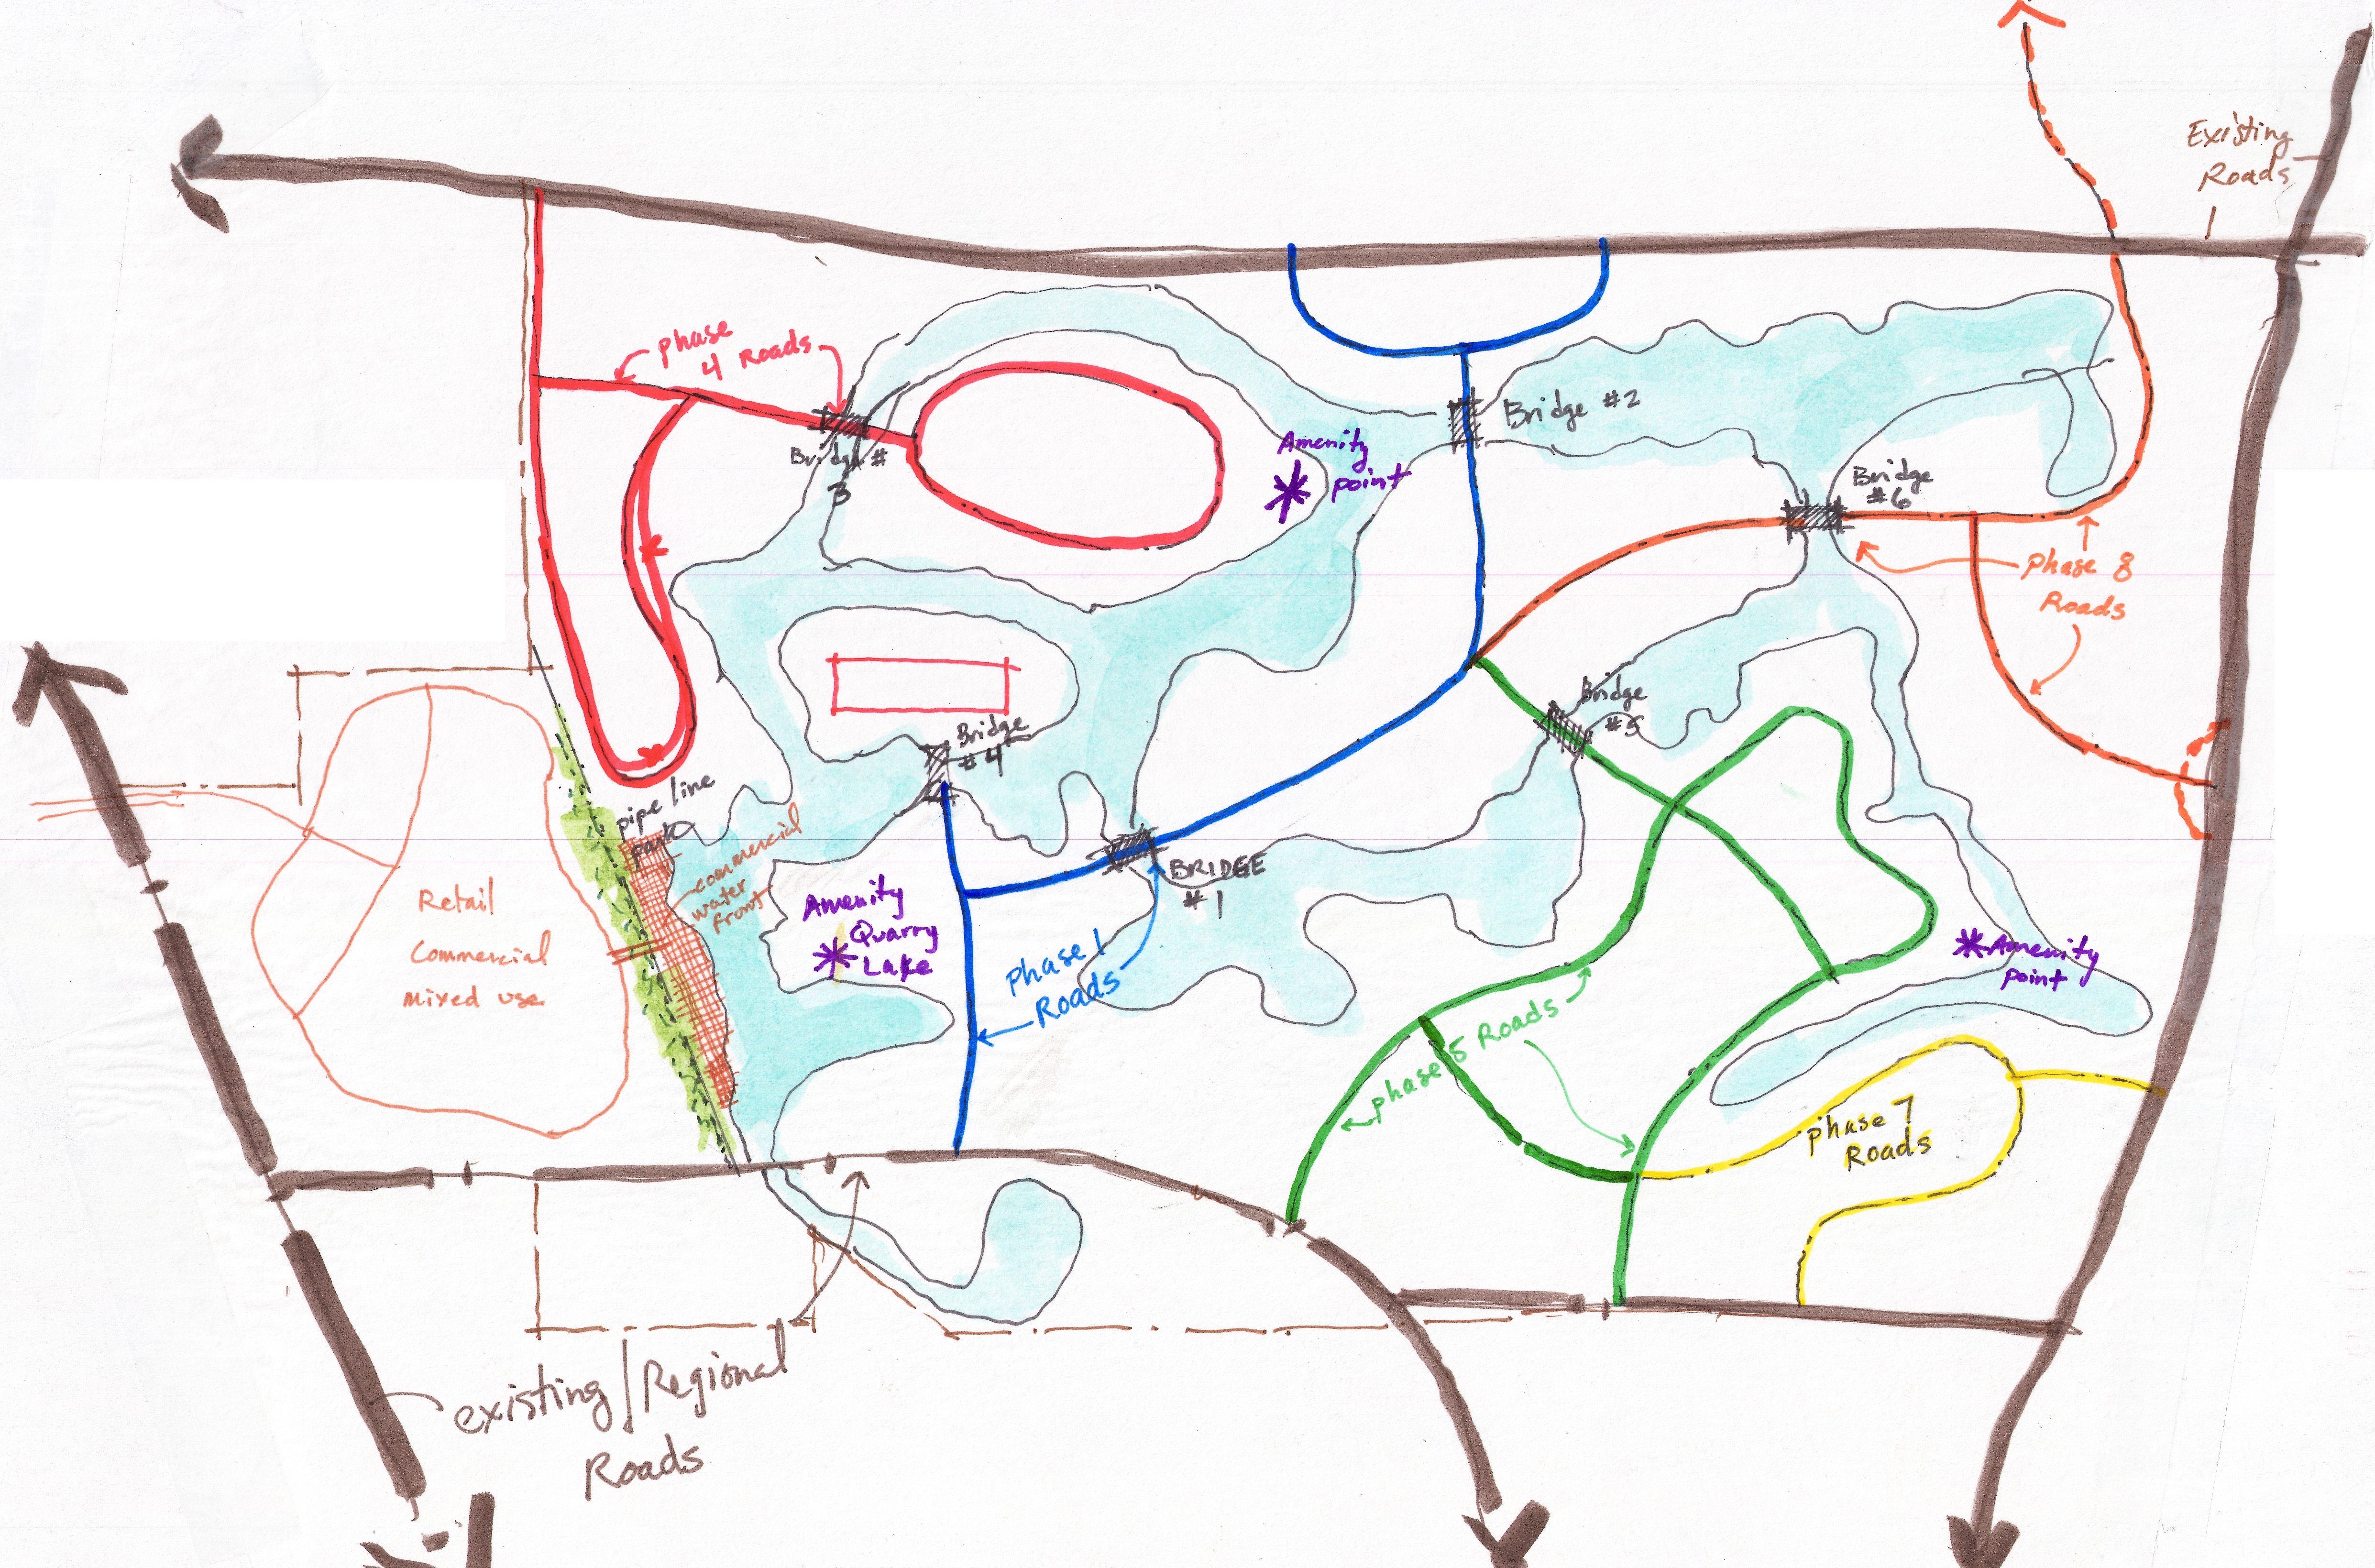 Existing
Roads
phase
4 Roads
Bridge #
3
Amenity
point
Bridge #2
Bridge
#6
phase 8
Roads
Bridge
#5
Bridge
#4
pipe line
park
commercial
water
front
Retail
Commercial
mixed use
Amenity
Quarry
Lake
BRIDGE
#1
Phase 1
Roads
Amenity
point
phase 5 Roads
phase 7
Roads
existing/Regional
Roads